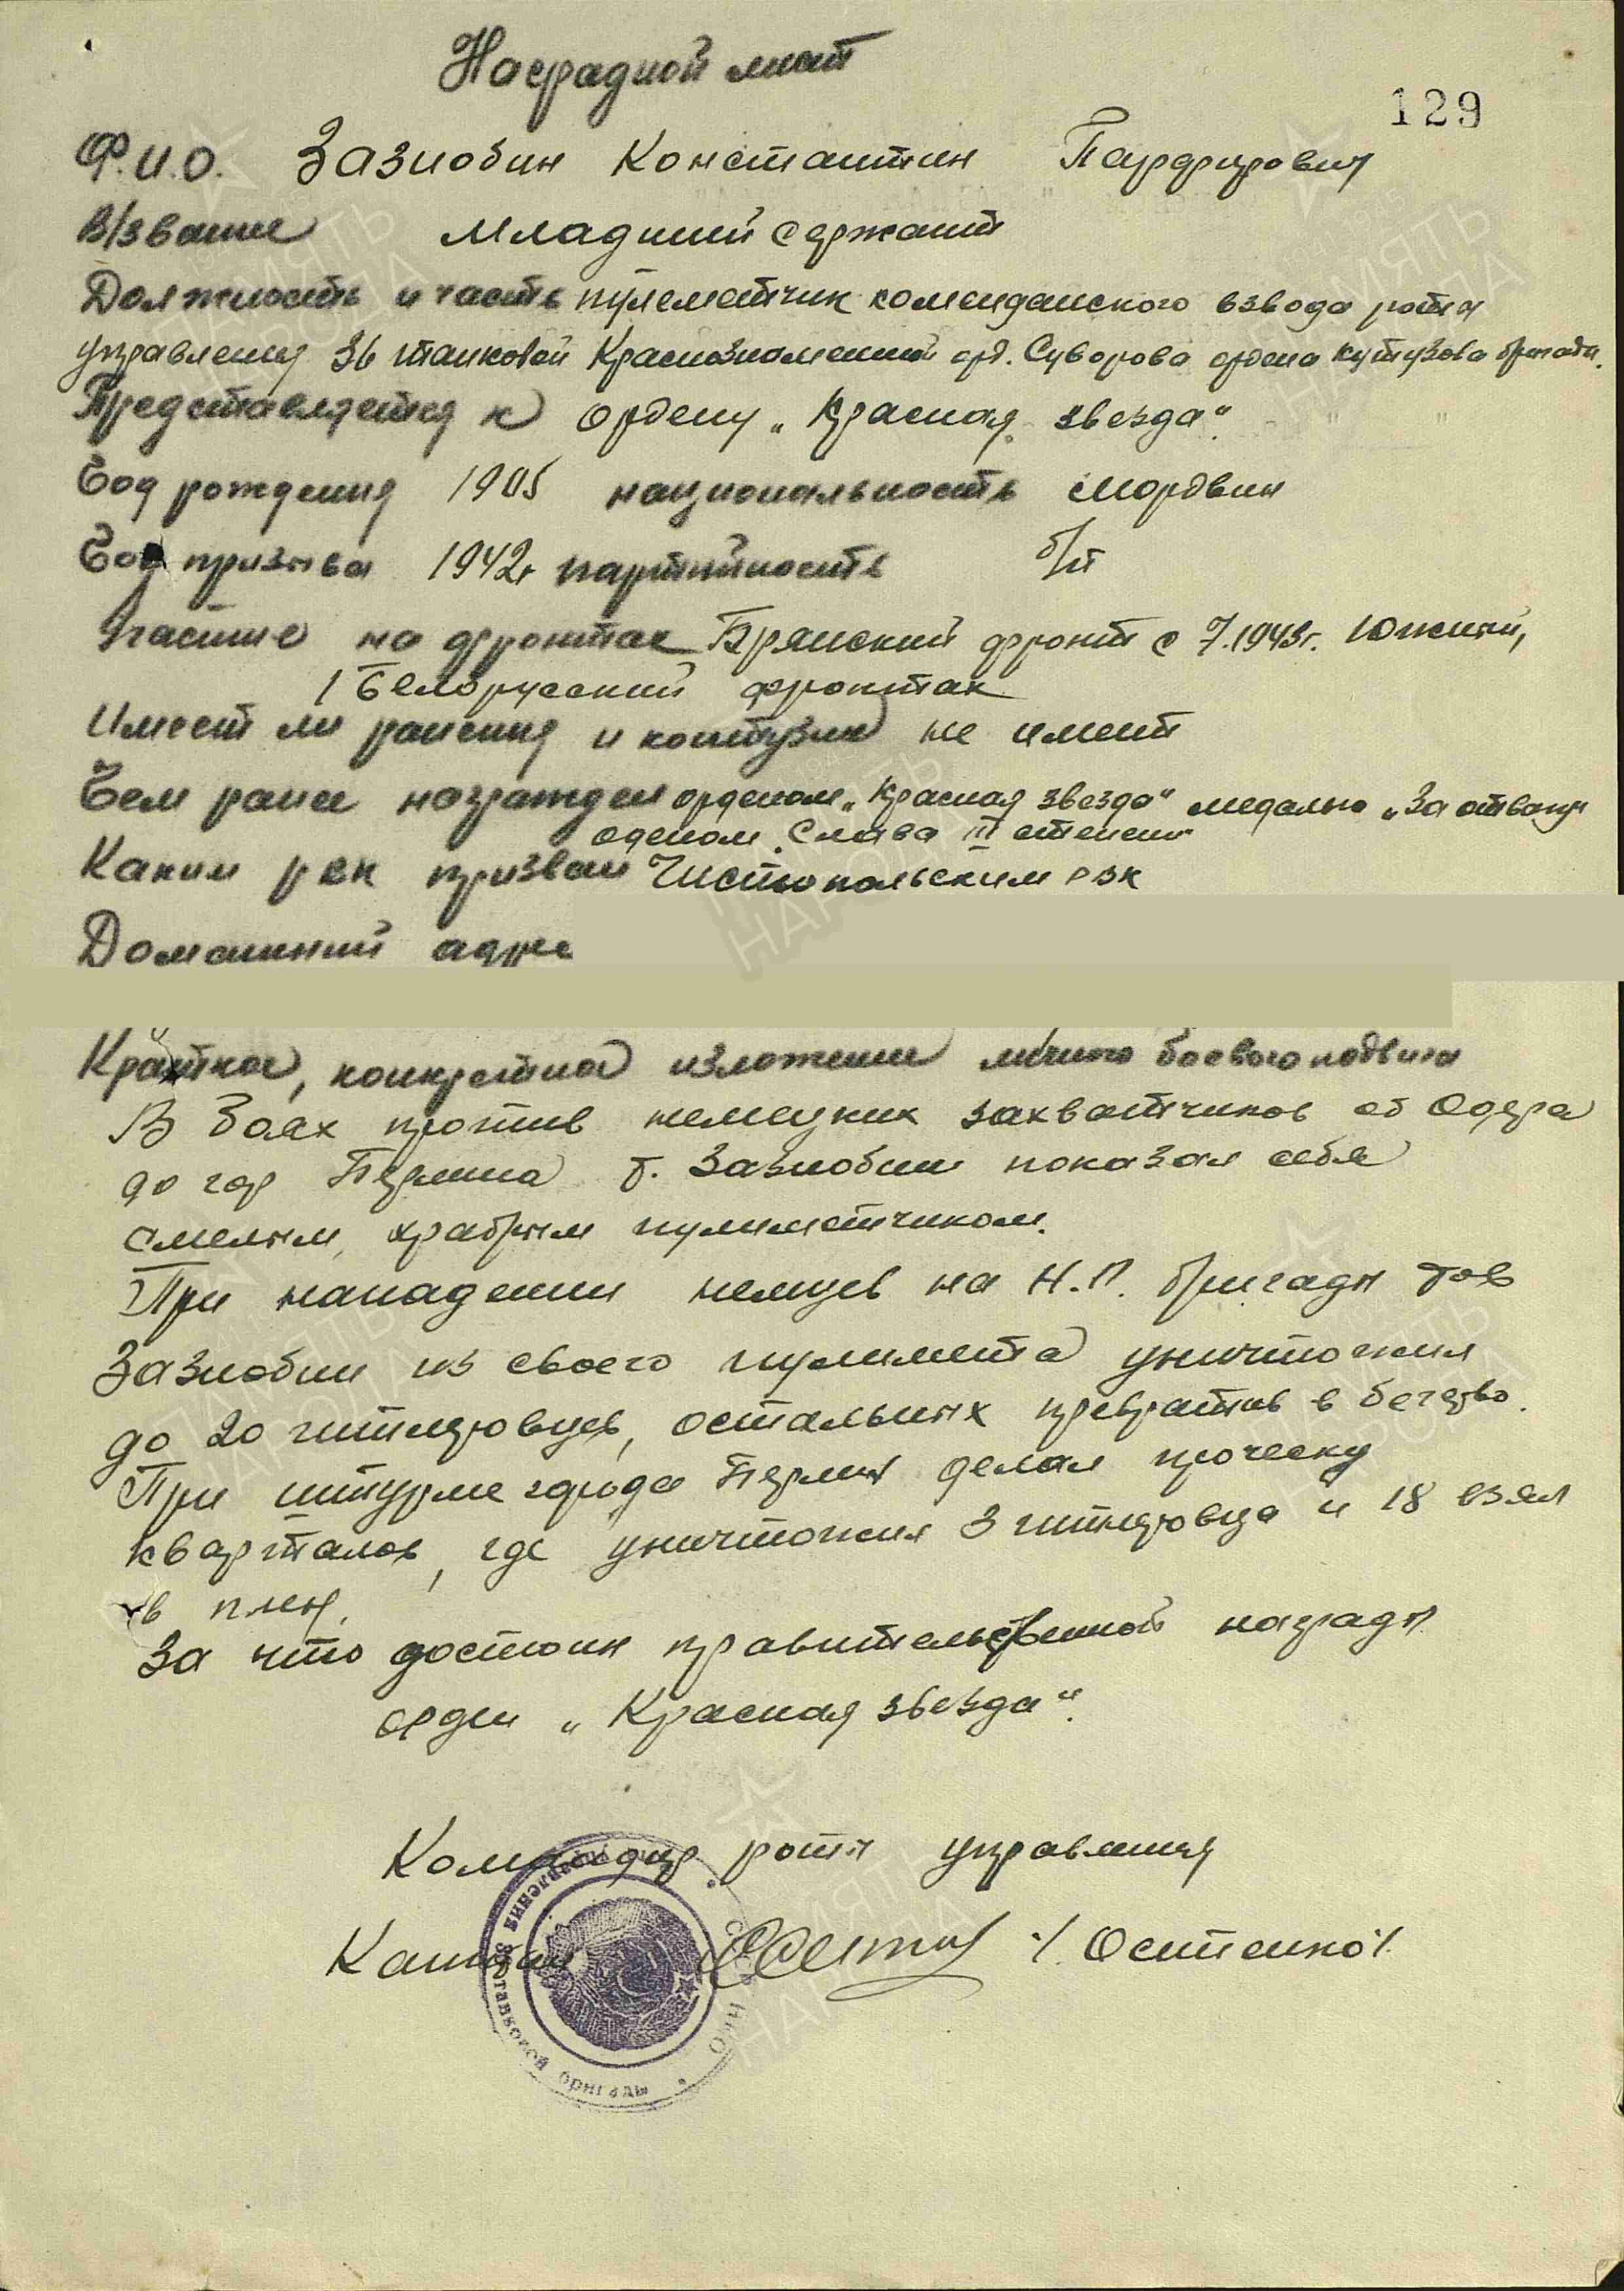 Наградной лист
129
Ф.И.О. Зазнобин Константин Парфирович
В/звание младший сержант
Должность и часть пулеметчик коменданского взвода роты
управления 36 танковой Краснознаменной орд. Суворова ордена Кутузова бригады.
Представляется к ордену „Красная звезда".
Год рождения 1905 национальность мордвин
Год призыва 1942г партийность б/п
Участие на фронтах Брянский фронт с 7.1943г. Южный,
1 Белорусский фронтах
Имеет ли ранения и контузии не имеет
Чем ранее награжден орденом „Красная звезда" медалью „За отвагу"
оденом „Слава III степени"
Каким рвк призван Чистопольским рвк
Домашний адрес
Краткое, конкретное изложение личного боевого подвига
В боях против немецких захватчиков от Одера
до гор Берлина т. Зазнобин показал себя
смелым, храбрым пулиметчиком.
При нападении немцев на Н.П. бригады тов
Зазнобин из своего пулимета уничтожил
до 20 гитлеровцев, остальных превратив в бегство.
При штурме города Берлин делал проческу
кварталов, где уничтожил 3 гитлеровца и 18 взял
в плен.
За что достоин правительственной награды
орден „Красная звезда".
Командир роты управления
Капитан /Остенко/.
управления танковой бригады
НКО
ПАМЯТЬ НАРОДА